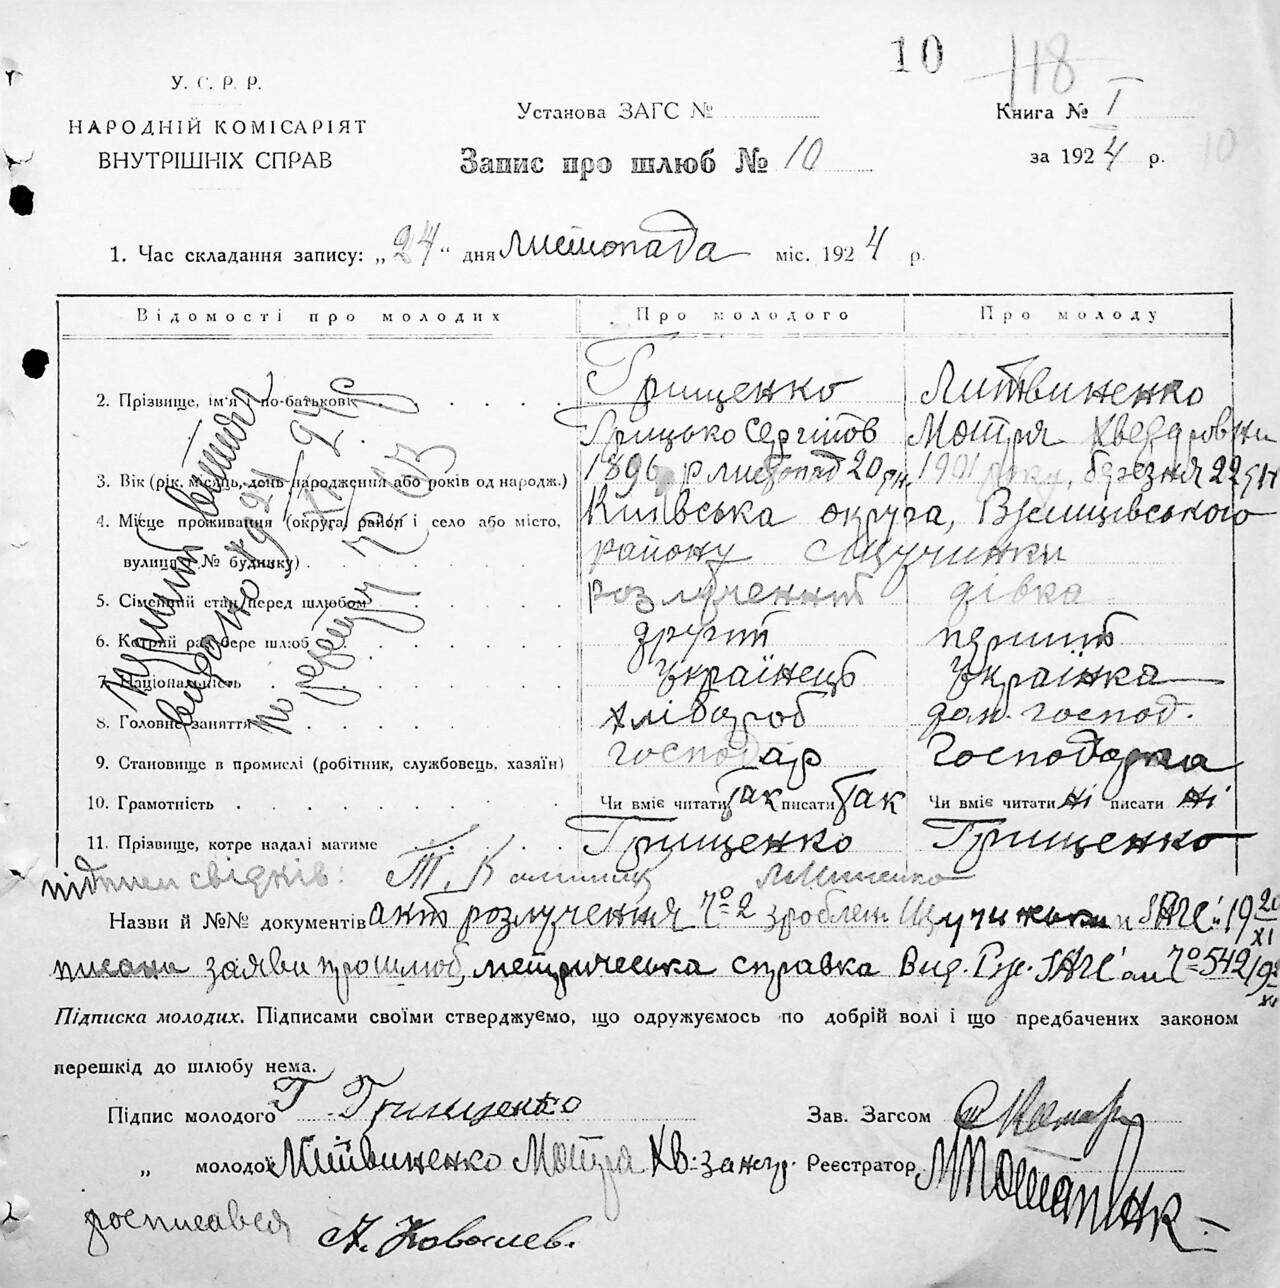 10 118
У. С. Р. Р.
НАРОДНІЙ КОМІСАРІЯТ
ВНУТРІШНІХ СПРАВ
Установа ЗАГС №
Запис про шлюб № 10
Книга № I
за 1924 р.
10
1. Час складання запису: „24“ дня листопада міс. 1924 р.
Відомості про молодих Про молодого Про молоду
2. Прізвище, ім'я по-батькові Грищенко Литвиненко
Грицько Сергіїов Мотря Хведоровни
3. Вік (рік, місяць, день народження або років од народж.) 1896 р листопад 20 дн. 1901 року, березня 22 дн
4. Місце проживання (округа, район і село або місто, Київська округа, Ржищівського
вулиця і № будинку) району Щучинки
5. Сімейний стан перед шлюбом розлучений дівка
6. Котрий раз бере шлюб другий перший
7. Національність українець українка
8. Головне заняття хлібороб дом. господ.
9. Становище в промислі (робітник, службовець, хазяїн) господар Господарка
10. Грамотність Чи вміє читати так писати так Чи вміє читати ні писати ні
11. Прізвище, котре надалі матиме Грищенко Грищенко
видано 24
XI 24 р
по реєстру № 63
підписи свідків: Т.
Назви й №№ документів акт розлучення № 2 зроблен ЗАГС 19 20/XI
заяви про шлюб, метрическа справка Вид. Рж. ЗАГС'ом № 542
Підписка молодих. Підписами своїми стверджуємо, що одружуємось по добрій волі і що предбачених законом
перешкід до шлюбу нема.
Підпис молодого Г. Грищенко
Зав. Загсом
„ молодої Литвиненко Мотря Хв. за негр.
Реєстратор
росписався А. Ковалев.